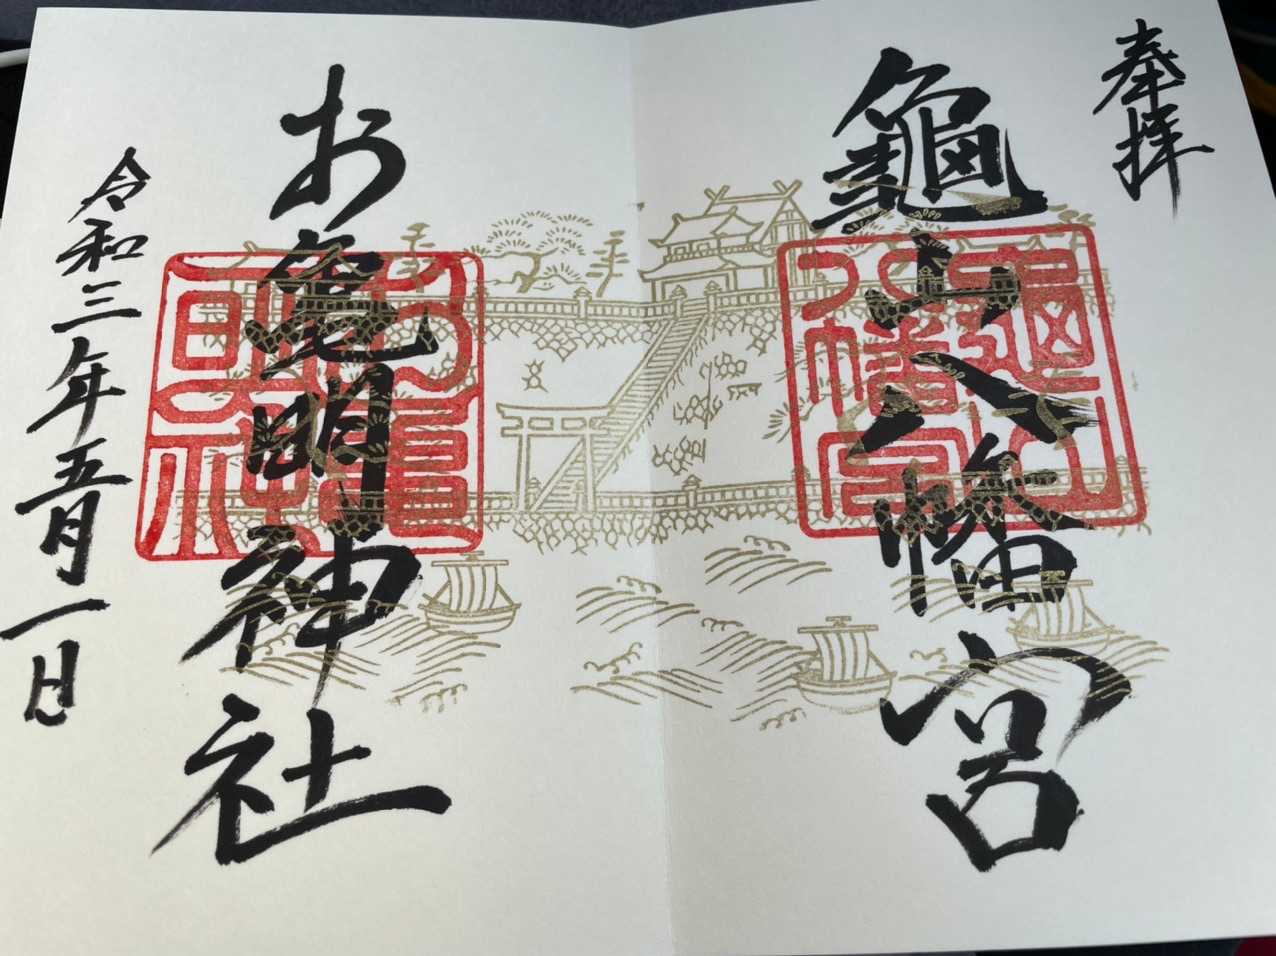 奉拝
龜山八幡宮
龜山
八幡宮
お亀明神社
令和三年五月一日